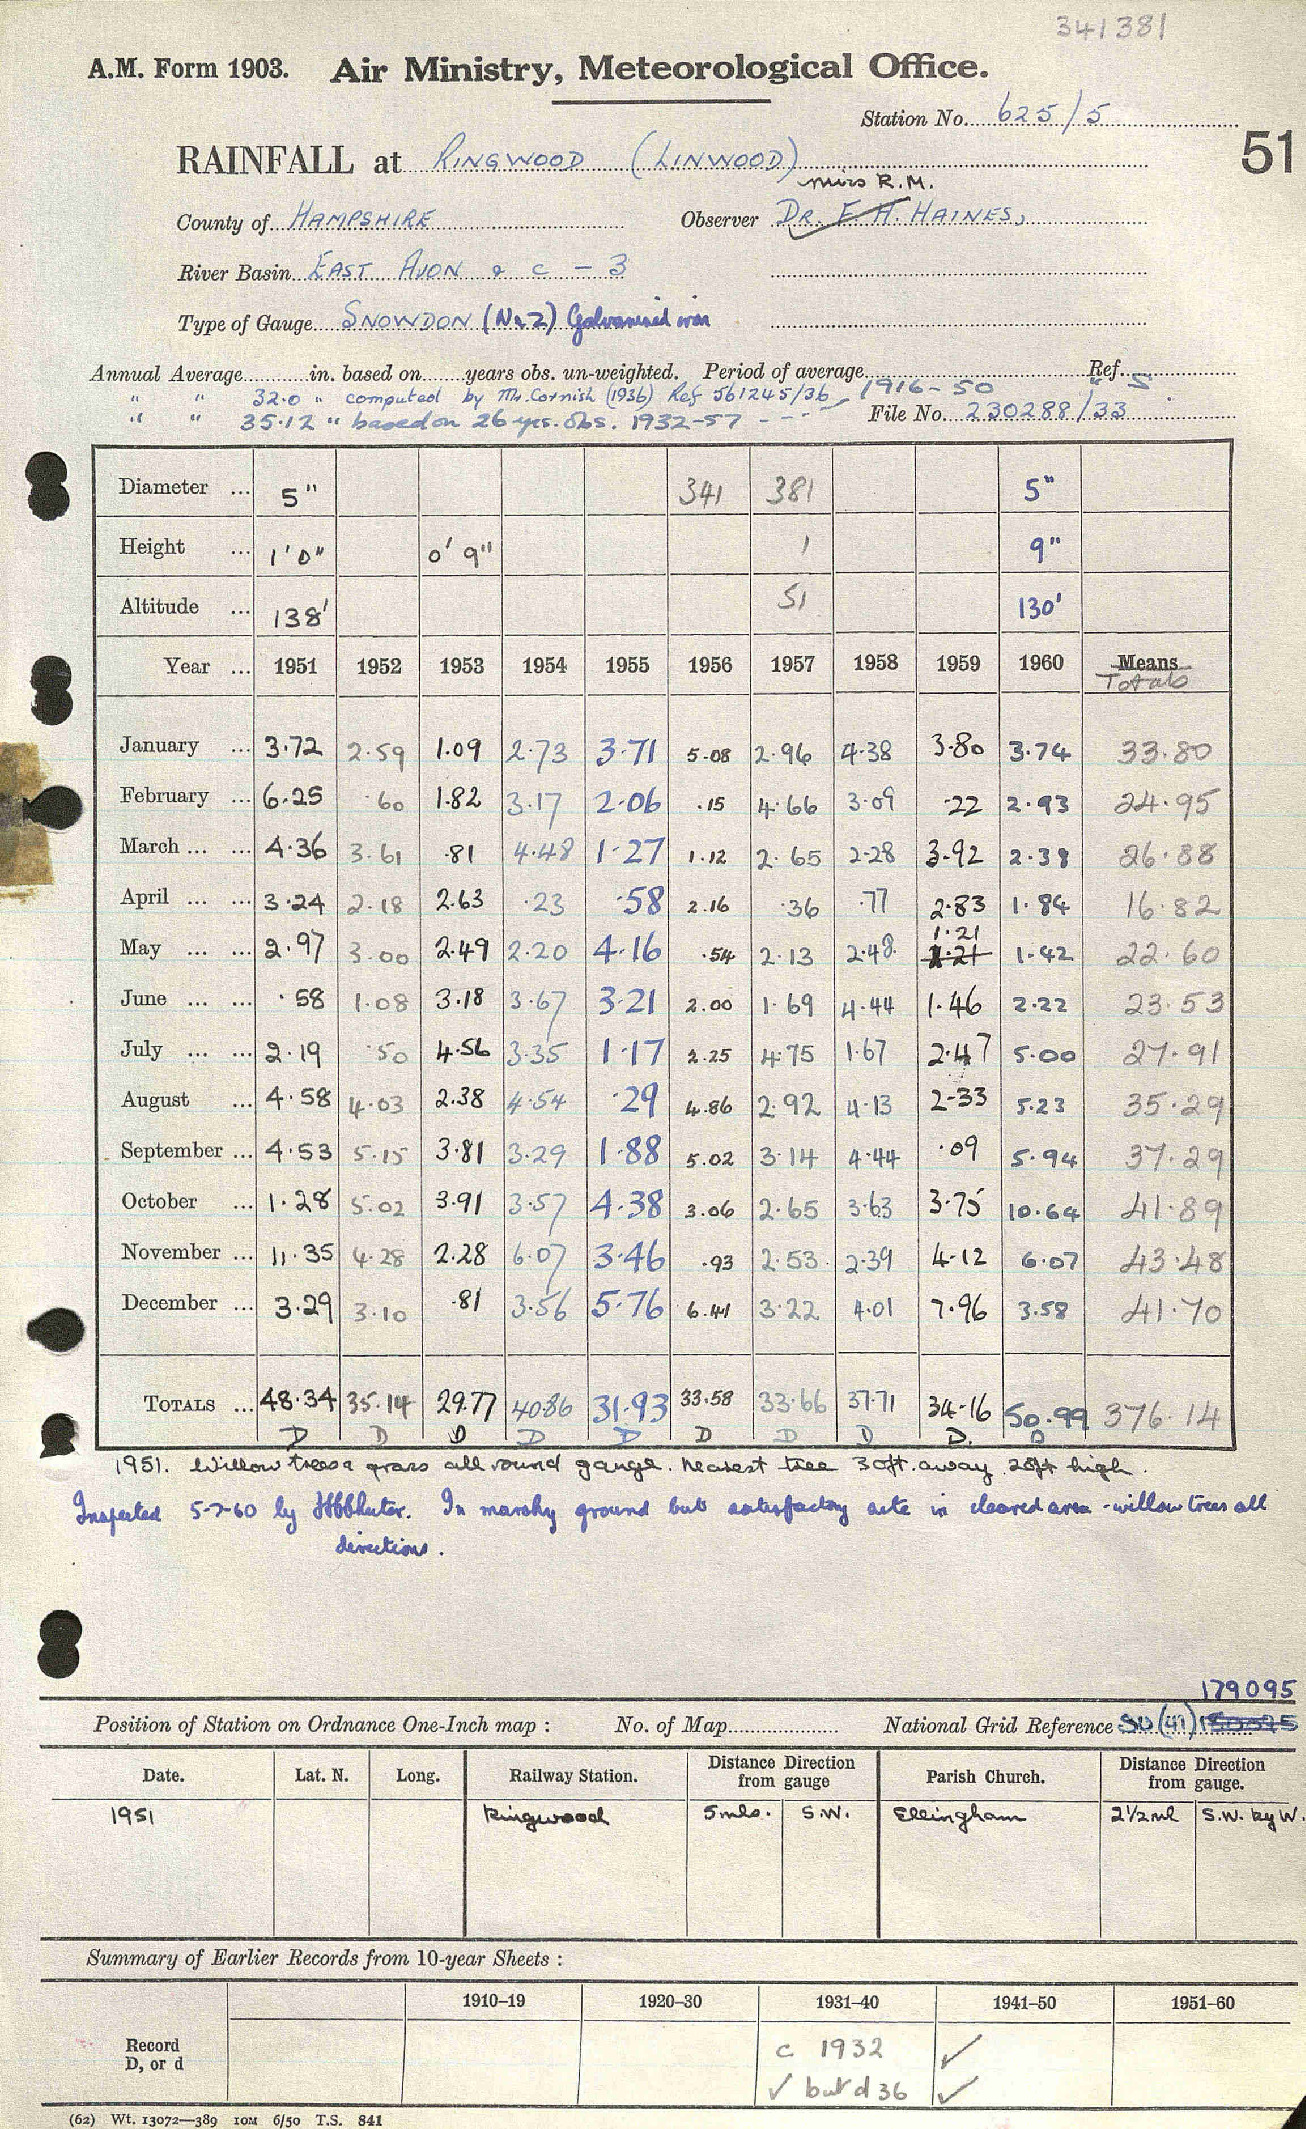 341381
A.M. Form 1903. Air Ministry, Meteorological Office.
Station No. 625/5
51
RAINFALL at RINGWOOD (LINWOOD)
Miss R.M.
County of HAMPSHIRE Observer DR. F. H. HAINES,
River Basin EAST AVON & C - 3
Type of Gauge SNOWDON (No 2) Galvanised iron
Annual Average in. based on years obs. un-weighted. Period of average Ref.
" " 32.0 " computed by Mr. Cornish (1936) Ref 561245/36, 1916-50 " S
" " 35.12 " based on 26 yrs. obs. 1932-57 - - - - File No. 230288/33
Diameter ... 5" 341 381 5"
Height ... 1'0" 0'9" 1 9"
Altitude ... 138' 51 130'
Year ... 1951 1952 1953 1954 1955 1956 1957 1958 1959 1960 Means
Totals
January ... 3.72 2.59 1.09 2.73 3.71 5.08 2.96 4.38 3.80 3.74 33.80
February ... 6.25 .60 1.82 3.17 2.06 .15 4.66 3.09 .22 2.93 24.95
March ... ... 4.36 3.61 .81 4.48 1.27 1.12 2.65 2.28 3.92 2.38 26.88
April ... ... 3.24 2.18 2.63 .23 .58 2.16 .36 .77 2.83 1.84 16.82
1.21
May ... ... 2.97 3.00 2.49 2.20 4.16 .54 2.13 2.48 1.21 1.42 22.60
June ... ... .58 1.08 3.18 3.67 3.21 2.00 1.69 4.44 1.46 2.22 23.53
July ... ... 2.19 .50 4.56 3.35 1.17 2.25 4.75 1.67 2.47 5.00 27.91
August ... 4.58 4.03 2.38 4.54 .29 4.86 2.92 4.13 2.33 5.23 35.29
September ... 4.53 5.15 3.81 3.29 1.88 5.02 3.14 4.44 .09 5.94 37.29
October ... 1.28 5.02 3.91 3.57 4.38 3.06 2.65 3.63 3.75 10.64 41.89
November ... 11.35 4.28 2.28 6.07 3.46 .93 2.53 2.39 4.12 6.07 43.48
December ... 3.29 3.10 .81 3.56 5.76 6.41 3.22 4.01 7.96 3.58 41.70
TOTALS ... 48.34 35.14 29.77 40.86 31.93 33.58 33.66 37.71 34.16 50.99 376.14
D D D D D D D D D. D
1951. Willow trees & grass all round gauge. Nearest tree 30ft. away 25ft high.
Inspected 5-7-60 by In marshy ground but satisfactory site in cleared area - willow trees all
directions.
179095
Position of Station on Ordnance One-Inch map : No. of Map National Grid Reference SU (41)
Date. Lat. N. Long. Railway Station. Distance from gauge Direction Parish Church. Distance from gauge. Direction
1951 Ringwood 5mls. S.W. Ellingham 2½ml S.W. by W.
Summary of Earlier Records from 10-year Sheets :
1910–19 1920–30 1931–40 1941–50 1951–60
Record c 1932 ✓
D, or d ✓ but d 36 ✓
(62) Wt. 13072—389 10M 6/50 T.S. 841